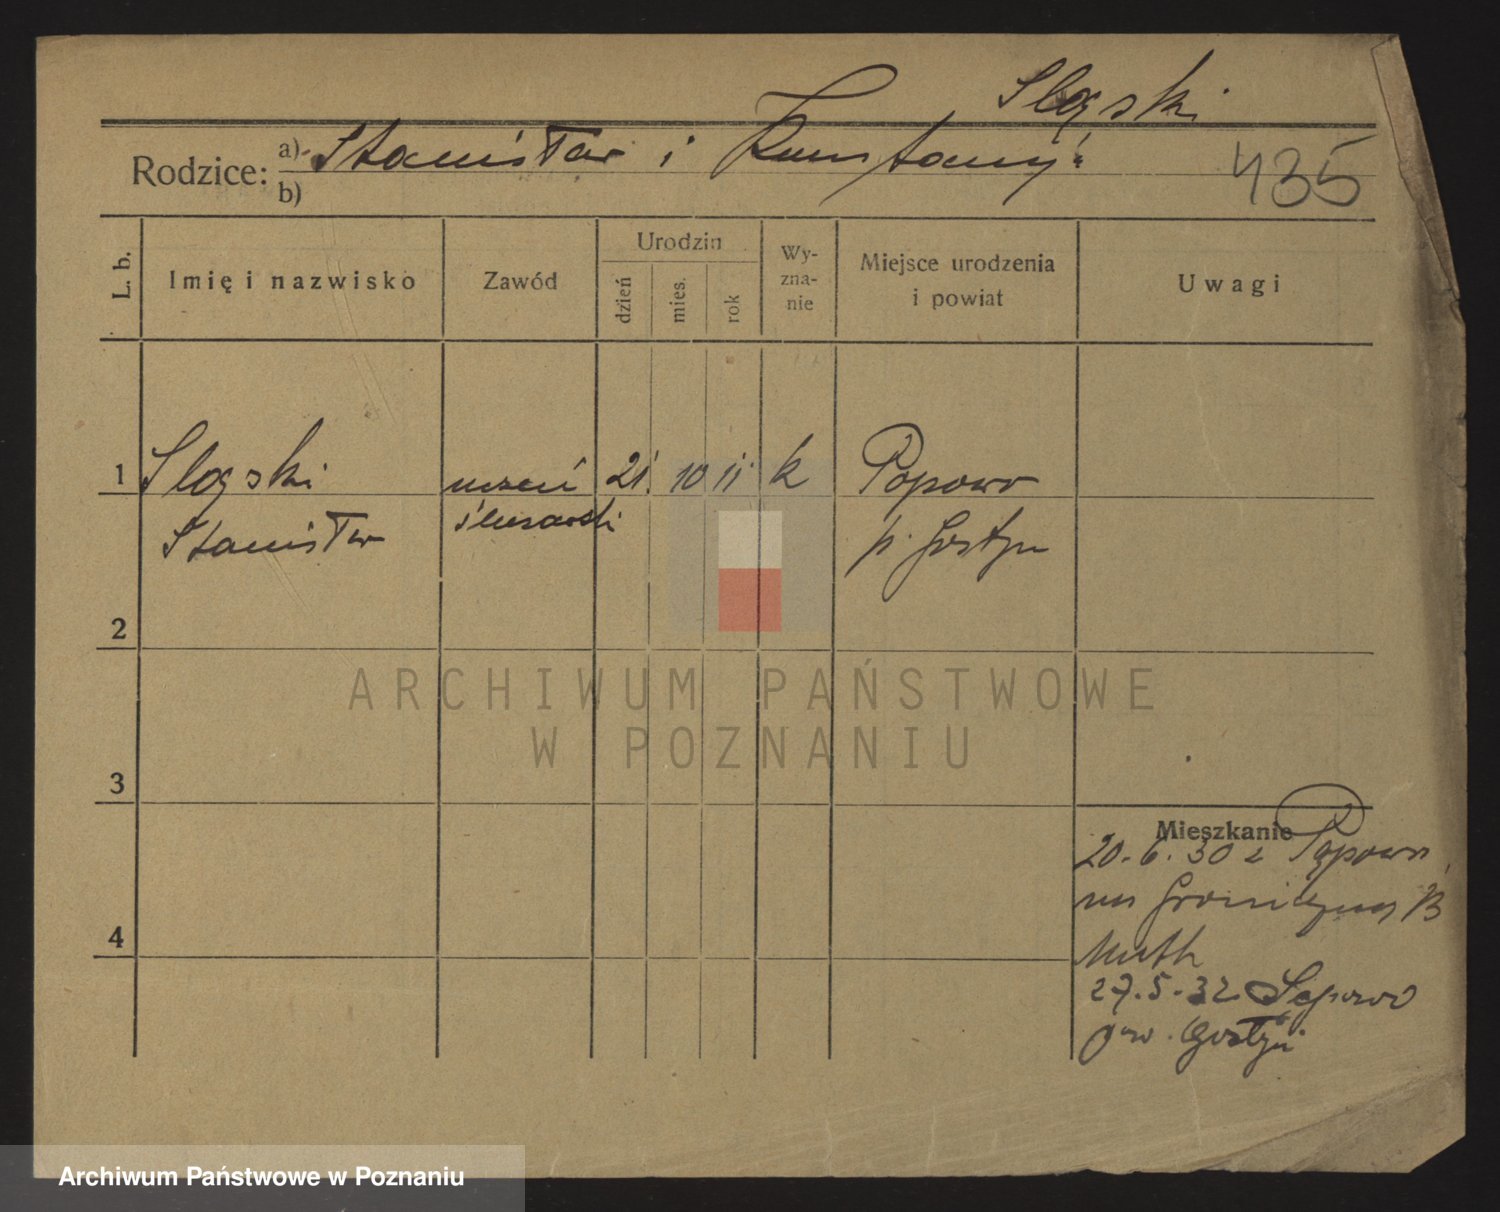 Slązski
Rodzice: a) Stanisław i
b)
435
L. b.
Imię i nazwisko
Zawód
Urodzin
dzień
mies.
rok
Wy-
zna-
nie
Miejsce urodzenia
i powiat
Uwagi
1 Sląski uczeń 21. 10 11 k Popowo
Stanisław ślusarski p. Gostyń
2
ARCHIWUM PAŃSTWOWE
W POZNANIU
3
Mieszkanie
20. 6. 30 z Popowo
na
4
27. 5. 32
pow. Gostyń
Archiwum Państwowe w Poznaniu